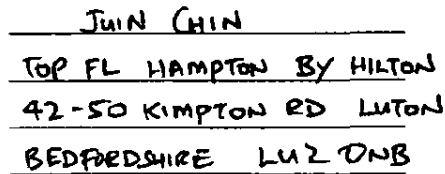 JUIN CHIN
TOP FL HAMPTON BY HILTON
42-50 KIMPTON RD LUTON
BEDFORDSHIRE LU2 0NB